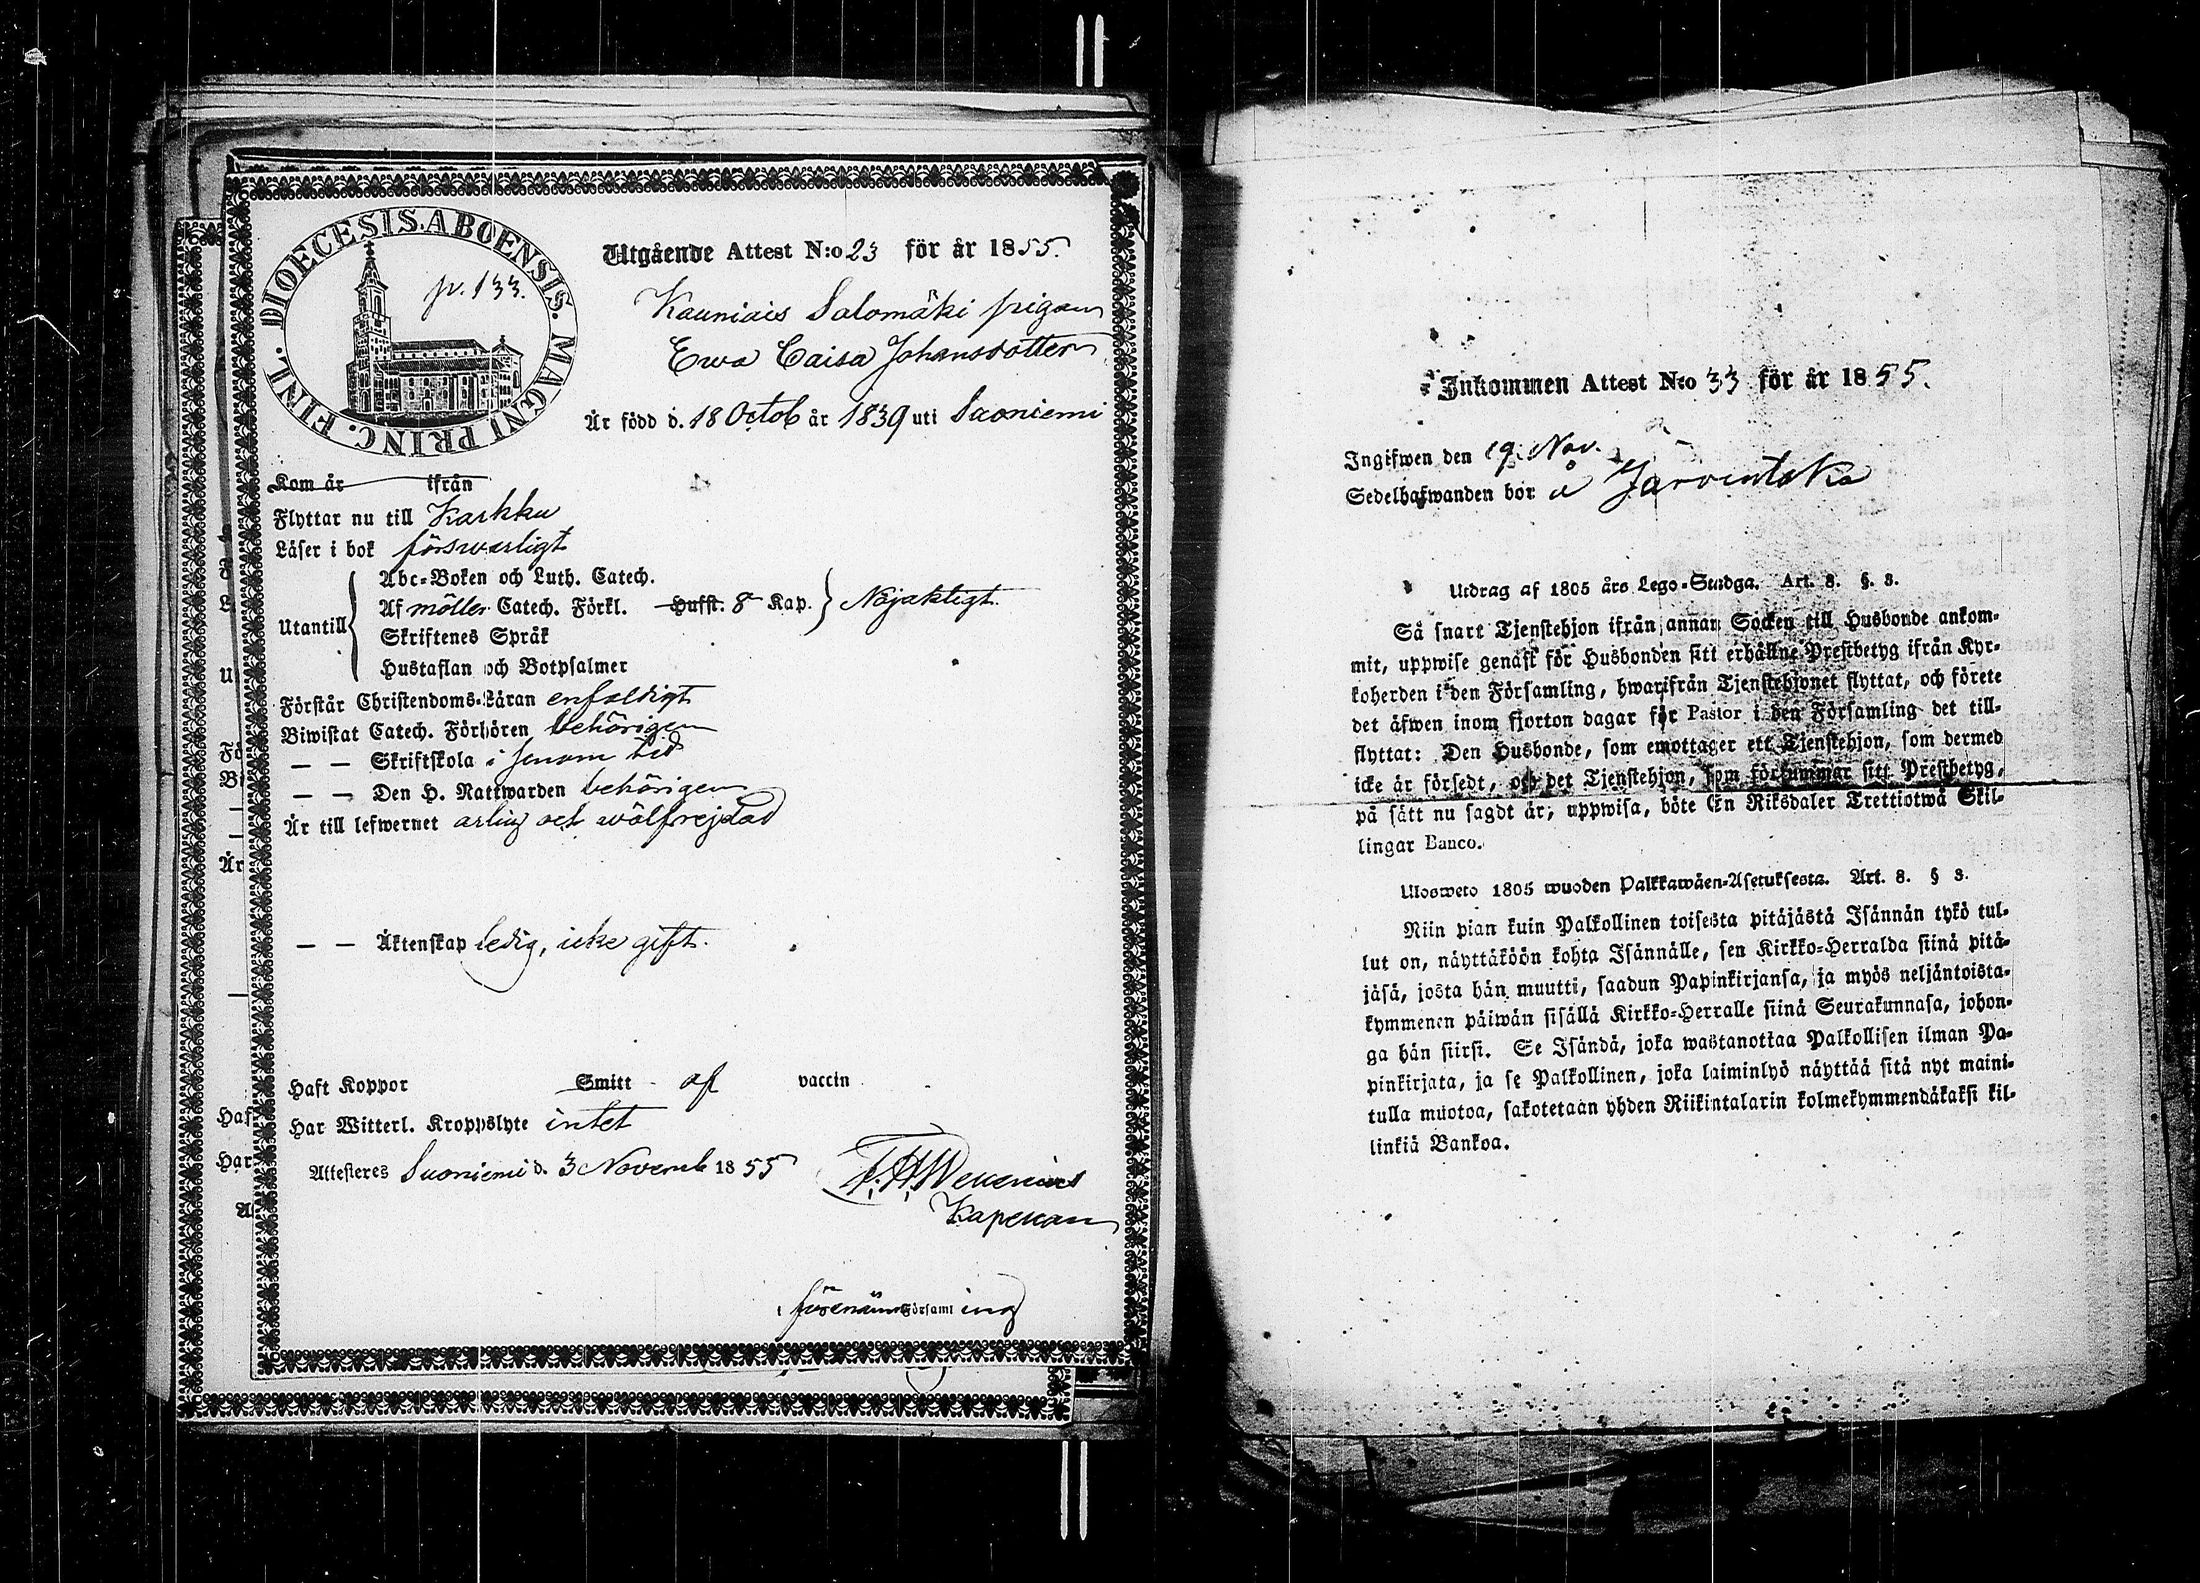 DIOECESIS. ABOENSIS. MAGNI PRINC. FINL.
p. 133.
Utgående Attest N:o 23 för år 1855.
Kauniais Salomäki pigan
Ewa Caisa Johansdotter
Är född d. 18 Octob år 1839 uti Suoniemi
Kom år ifrån
Flyttar nu till Karkku
Läser i bok förswarligt
Utantill
Abc-Boken och Luth. Catech.
Af möller Catech. Förkl. Hufst. 8 Kap. Nöjaktigt.
Skriftenes Språk
Hustaflan och Botpsalmer
Förstår Christendoms-Läran enfaldigt
Biwistat Catech. Förhören behörigen
— — Skriftskola i
— — Den H. Nattwarden behörigen
Är till lefwernet ärlig och wälfrejdad
— — Äktenskap ledig, icke gift.
Haft Koppor Smitt af vaccin
Har Witterl. Kroppslyte intet
Attesteres Suoniemi d. 3 Novemb 1855
F. H.
Kapellan
i Församling
Inkommen Attest N:o 33 för år 1855.
Ingifwen den 19. Nov.
Sedelhafwanden bor å
Utdrag af 1805 års Lego-Stadga. Art. 8. §. 3.
Så snart Tjenstehjon ifrån annan Socken till Husbonde ankom-
mit, uppwise genast för Husbonden sitt erhållne Prestbetyg ifrån Kyr-
koherden i den Församling, hwarifrån Tjenstehjonet flyttat, och förete
det äfwen inom fjorton dagar för Pastor i den Församling det till-
flyttat: Den Husbonde, som emottager ett Tjenstehjon, som dermed
icke är försedt, och det Tjenstehjon, som försummar sitt Prestbetyg,
på sätt nu sagdt är, uppwisa, böte En Riksdaler Trettiotwå Skil-
lingar Banco.
Ulosweto 1805 wuoden Palkkawäen-Asetuksesta. Art. 8. § 3.
Niin pian kuin Palkollinen toisesta pitäjästä Isännän tykö tul-
lut on, näyttäköön kohta Isännälle, sen Kirkko-Herralda siinä pitä-
jäsä, josta hän muutti, saadun Papinkirjansa, ja myös neljäntoista-
kymmenen päiwän sisällä Kirkko-Herralle siinä Seurakunnasa, johon-
ga hän siirsi. Se Isändä, joka wastanottaa Palkollisen ilman Pa-
pinkirjata, ja se Palkollinen, joka laiminlyö näyttää sitä nyt maini-
tulla muotoa, sakotetaan yhden Riikintalarin kolmekymmendäkaksi kil-
linkiä Bankoa.